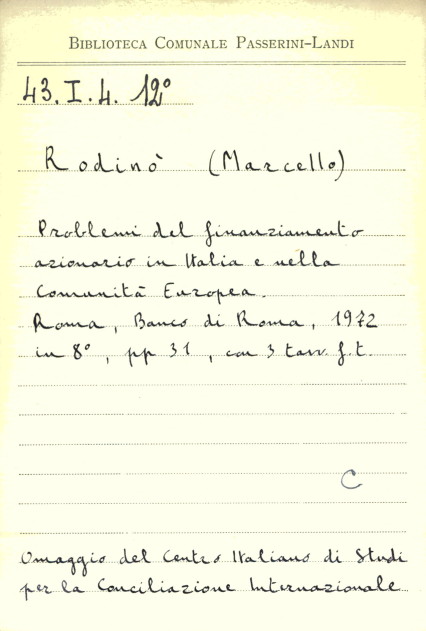 BIBLIOTECA COMUNALE PASSERINI-LANDI
43.I.4. 12°
Rodinò (Marcello)
Problemi del finanziamento
azionario in Italia e nella
Comunità Europea.
Roma, Banco di Roma, 1972
in 8°, pp 31, con 3 tavv. f.t.
C
Omaggio del Centro Italiano di Studi
per la Conciliazione Internazionale